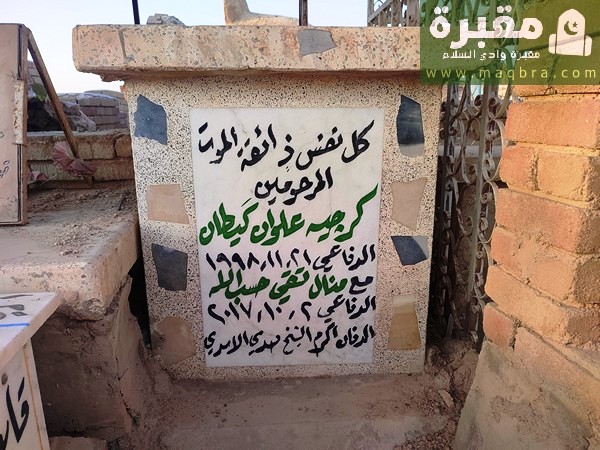 مقبرة
مقبرة وادي السلام
www.maqbra.com
كل نفس ذائقة الموت
المرحومين
كرجيه علوان گيطان
الدفاعي ١٩٩٨/١١/٢١
مع منال تقي حسب الله
الدفاعي ٢٠١٧/١٠/٢
الدفان اكرم الشيخ مهدي الاسدي